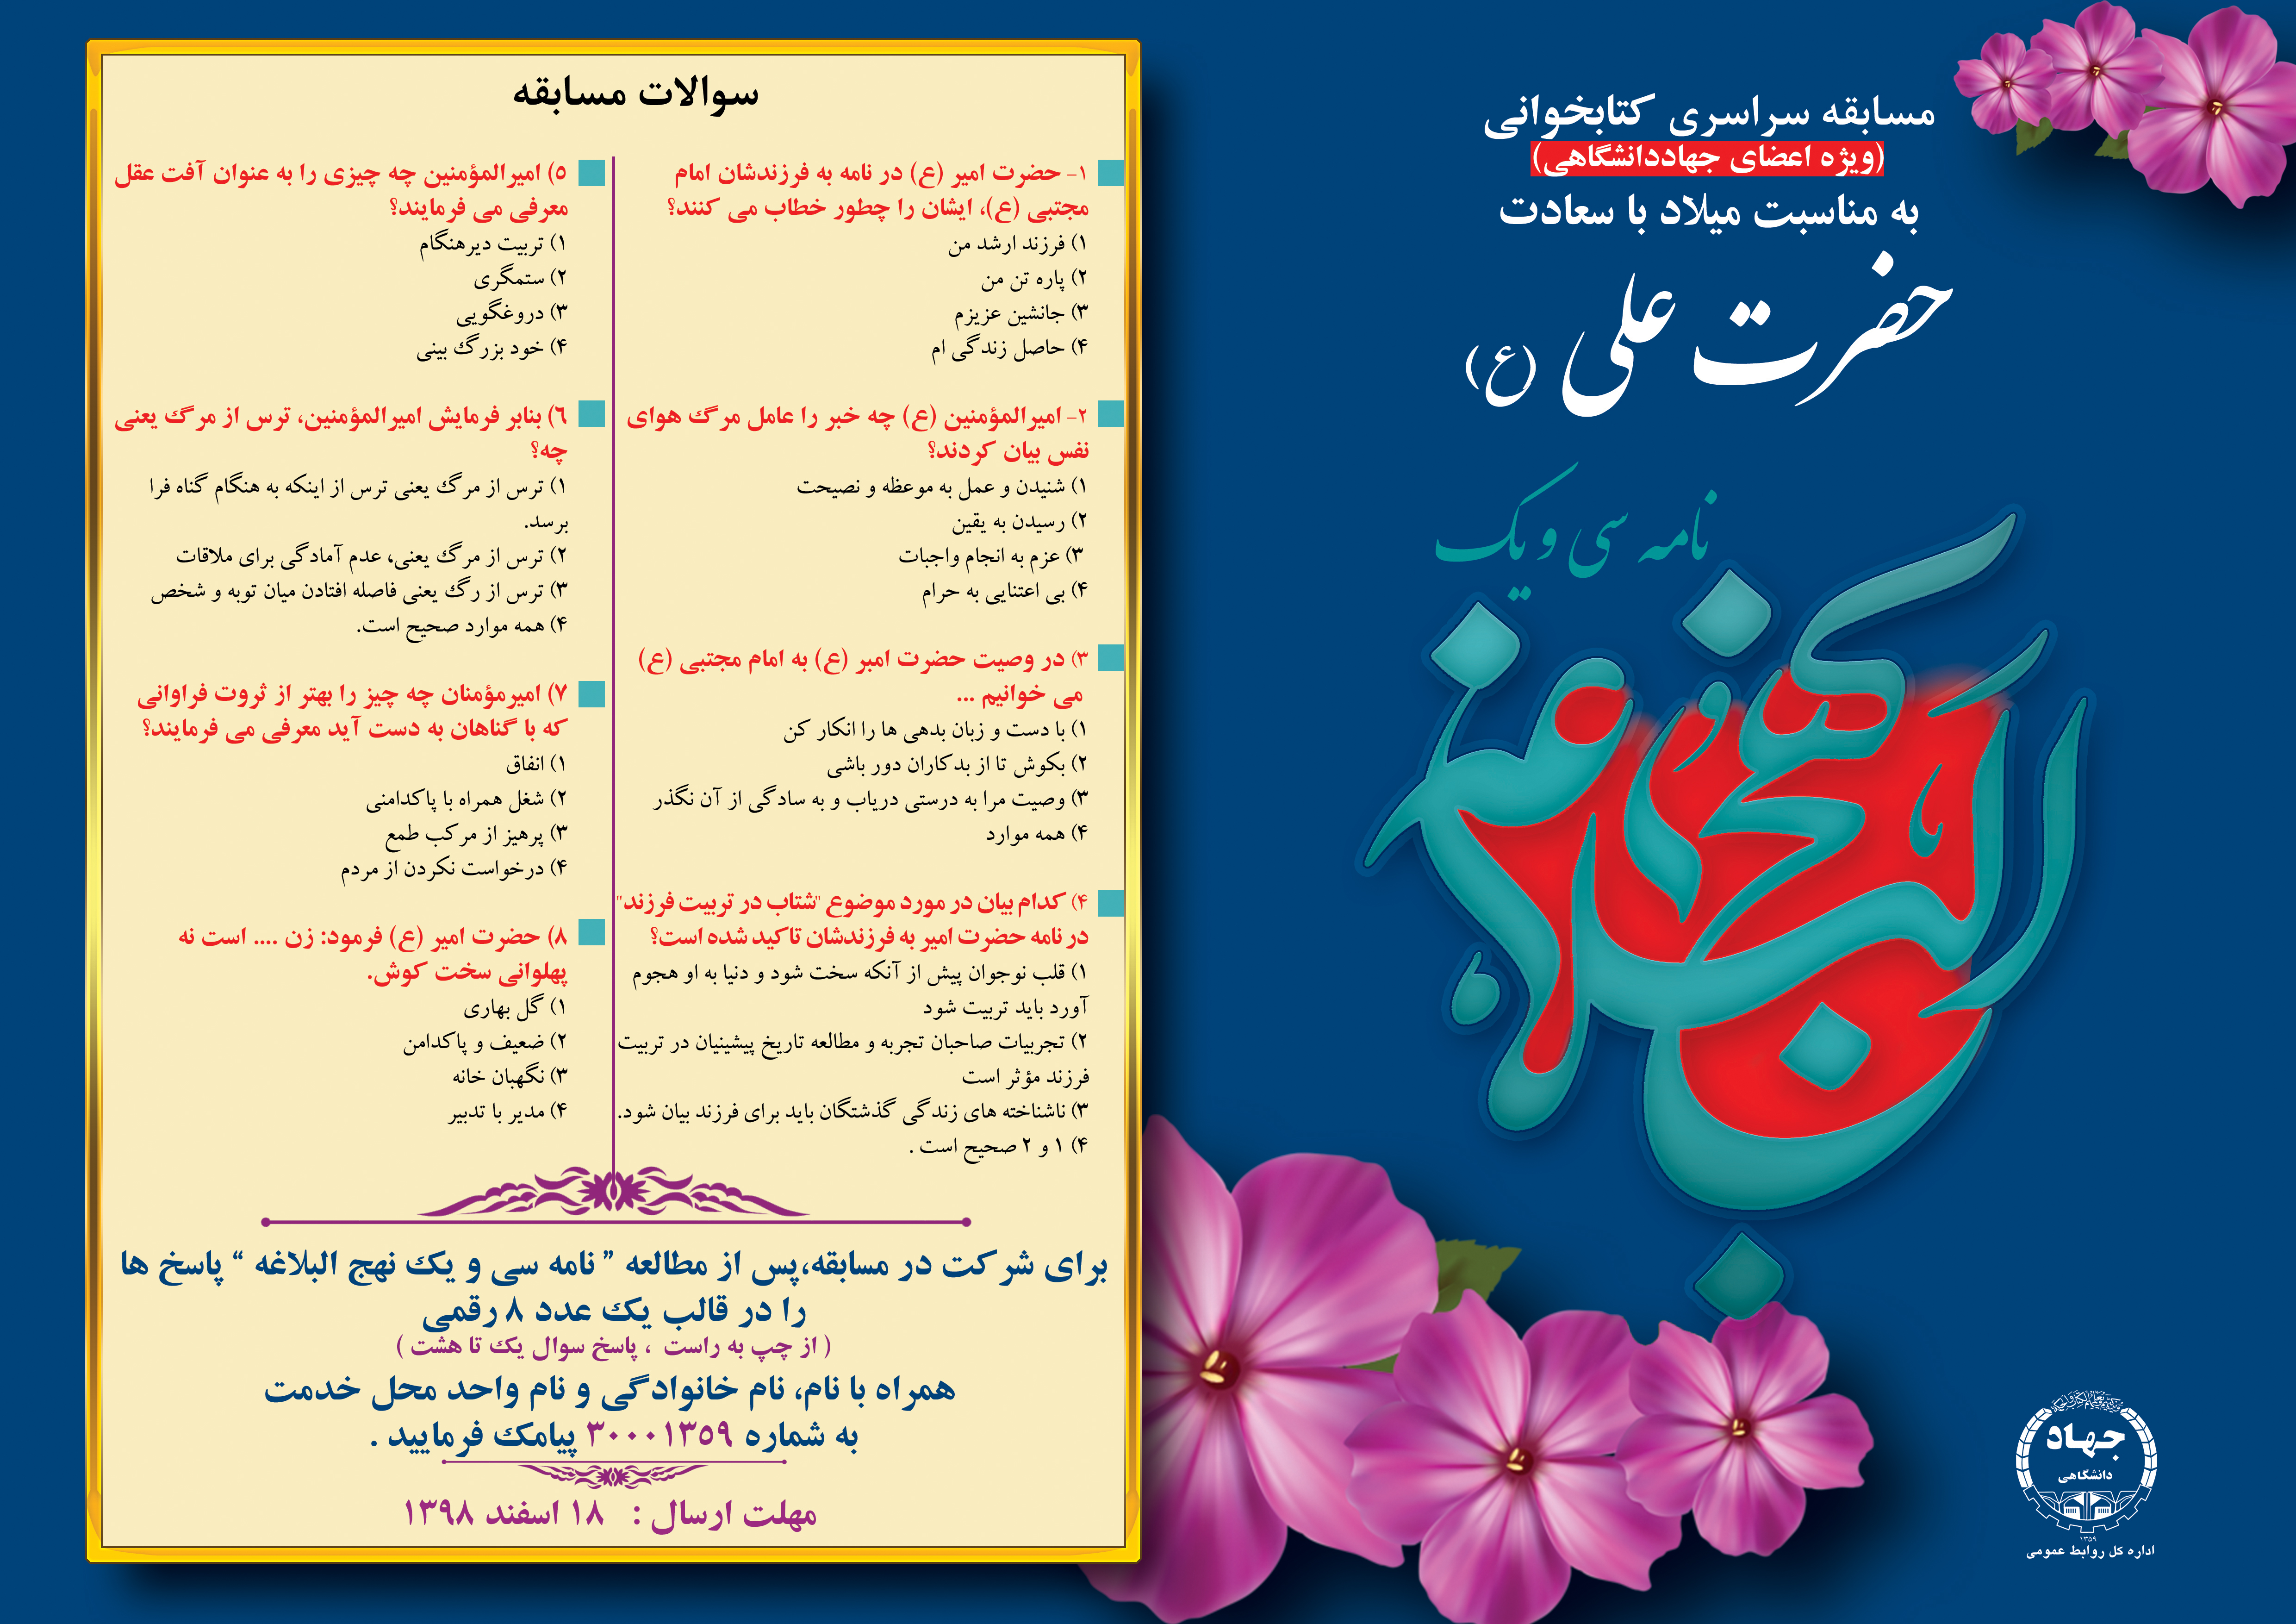 مسابقه سراسری کتابخوانی
(ویژه اعضای جهاددانشگاهی)
به مناسبت میلاد با سعادت
حضرت علی (ع)
نامه سی و یک
نهج البلاغه
جهاد
دانشگاهی
۱۳۵۹
اداره کل روابط عمومی
سوالات مسابقه
۱- حضرت امیر (ع) در نامه به فرزندشان امام
مجتبی (ع)، ایشان را چطور خطاب می کنند؟
۱) فرزند ارشد من
۲) پاره تن من
۳) جانشین عزیزم
۴) حاصل زندگی ام
۲- امیرالمؤمنین (ع) چه خبر را عامل مرگ هوای
نفس بیان کردند؟
۱) شنیدن و عمل به موعظه و نصیحت
۲) رسیدن به یقین
۳) عزم به انجام واجبات
۴) بی اعتنایی به حرام
۳) در وصیت حضرت امبر (ع) به امام مجتبی (ع)
می خوانیم ...
۱) با دست و زبان بدهی ها را انکار کن
۲) بکوش تا از بدکاران دور باشی
۳) وصیت مرا به درستی دریاب و به سادگی از آن نگذر
۴) همه موارد
۴) کدام بیان در مورد موضوع "شتاب در تربیت فرزند"
در نامه حضرت امیر به فرزندشان تاکید شده است؟
۱) قلب نوجوان پیش از آنکه سخت شود و دنیا به او هجوم
آورد باید تربیت شود
۲) تجربیات صاحبان تجربه و مطالعه تاریخ پیشینیان در تربیت
فرزند مؤثر است
۳) ناشناخته های زندگی گذشتگان باید برای فرزند بیان شود.
۴) ۱ و ۲ صحیح است .
۵) امیرالمؤمنین چه چیزی را به عنوان آفت عقل
معرفی می فرمایند؟
۱) تربیت دیرهنگام
۲) ستمگری
۳) دروغگویی
۴) خود بزرگ بینی
۶) بنابر فرمایش امیرالمؤمنین، ترس از مرگ یعنی
چه؟
۱) ترس از مرگ یعنی ترس از اینکه به هنگام گناه فرا
برسد.
۲) ترس از مرگ یعنی، عدم آمادگی برای ملاقات
۳) ترس از رگ یعنی فاصله افتادن میان توبه و شخص
۴) همه موارد صحیح است.
۷) امیرمؤمنان چه چیز را بهتر از ثروت فراوانی
که با گناهان به دست آید معرفی می فرمایند؟
۱) انفاق
۲) شغل همراه با پاکدامنی
۳) پرهیز از مرکب طمع
۴) درخواست نکردن از مردم
۸) حضرت امیر (ع) فرمود: زن .... است نه
پهلوانی سخت کوش.
۱) گل بهاری
۲) ضعیف و پاکدامن
۳) نگهبان خانه
۴) مدیر با تدبیر
برای شرکت در مسابقه،پس از مطالعه " نامه سی و یک نهج البلاغه " پاسخ ها
را در قالب یک عدد ۸ رقمی
( از چپ به راست ، پاسخ سوال یک تا هشت )
همراه با نام، نام خانوادگی و نام واحد محل خدمت
به شماره ۳۰۰۰۱۳۵۹ پیامک فرمایید .
مهلت ارسال : ۱۸ اسفند ۱۳۹۸